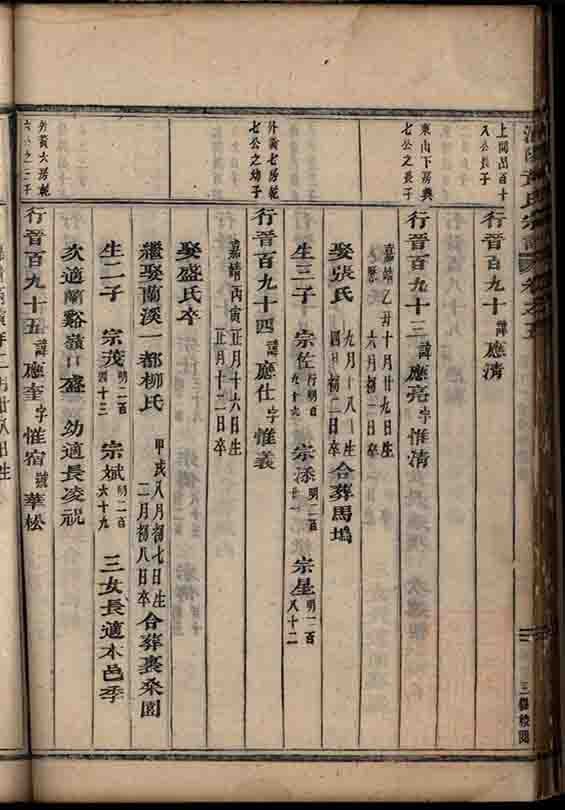 上間呂百十
八公長子
行晉百九十 諱 應清
東山下房與
七公之長子
行晉百九十三 諱 應亮 字 惟清
嘉靖乙丑十月廿九日生
萬歷 六月初二日卒
娶張氏 九月十八日生
四月初二日卒 合葬馬塢
生三子 宗佐 行明百
九十六 宗添 明二百
廿一 宗星 明二百
八十二
外黃七房乾
七公之幼子
行晉百九十四 諱 應仕 字 惟義
嘉靖丙寅正月十六日生
正月十二日卒
娶盛氏卒
繼娶蘭溪一都柳氏 甲戌八月初七日生
二月初八日卒 合葬裏桑園
生二子 宗茂 明二百
四十三 宗斌 明二百
六十九 三女長適本邑季
次適蘭谿嶺口盛 幼適長凌祝
外黃六房乾
六公之子
行晉百九十五 諱 應奎 字 惟宿 號 華松